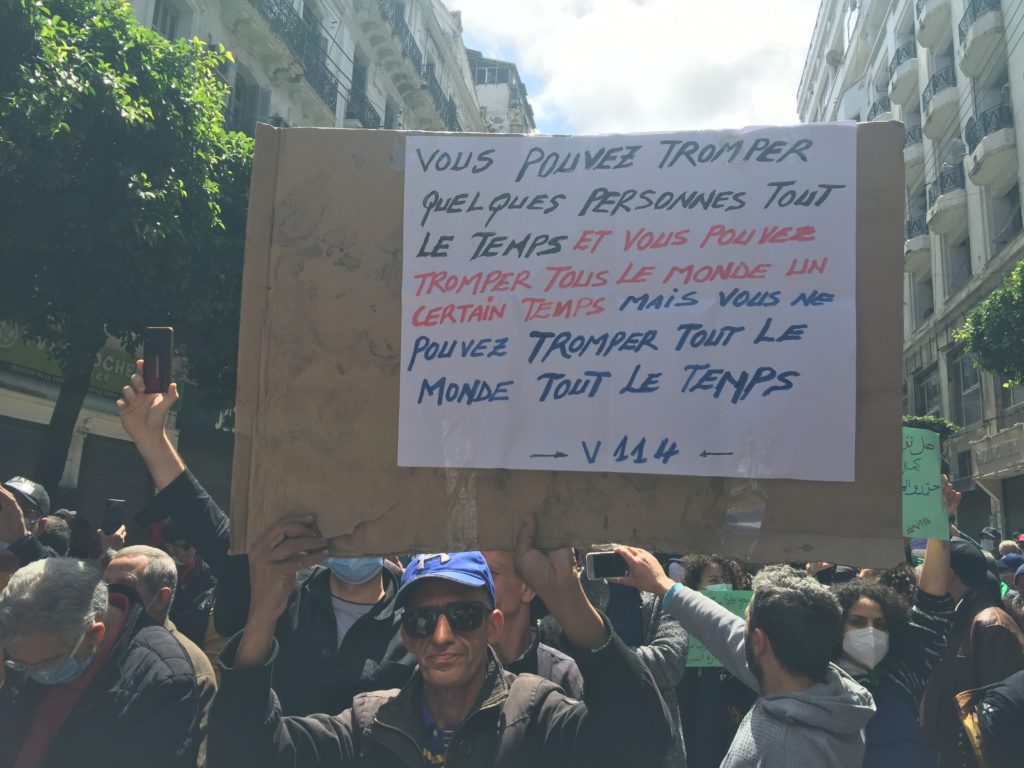 VOUS POUVEZ TROMPER
QUELQUES PERSONNES TOUT
LE TEMPS ET VOUS POUVEZ
TROMPER TOUS LE MONDE UN
CERTAIN TEMPS MAIS VOUS NE
POUVEZ TROMPER TOUT LE
MONDE TOUT LE TEMPS
→ V 114 ←